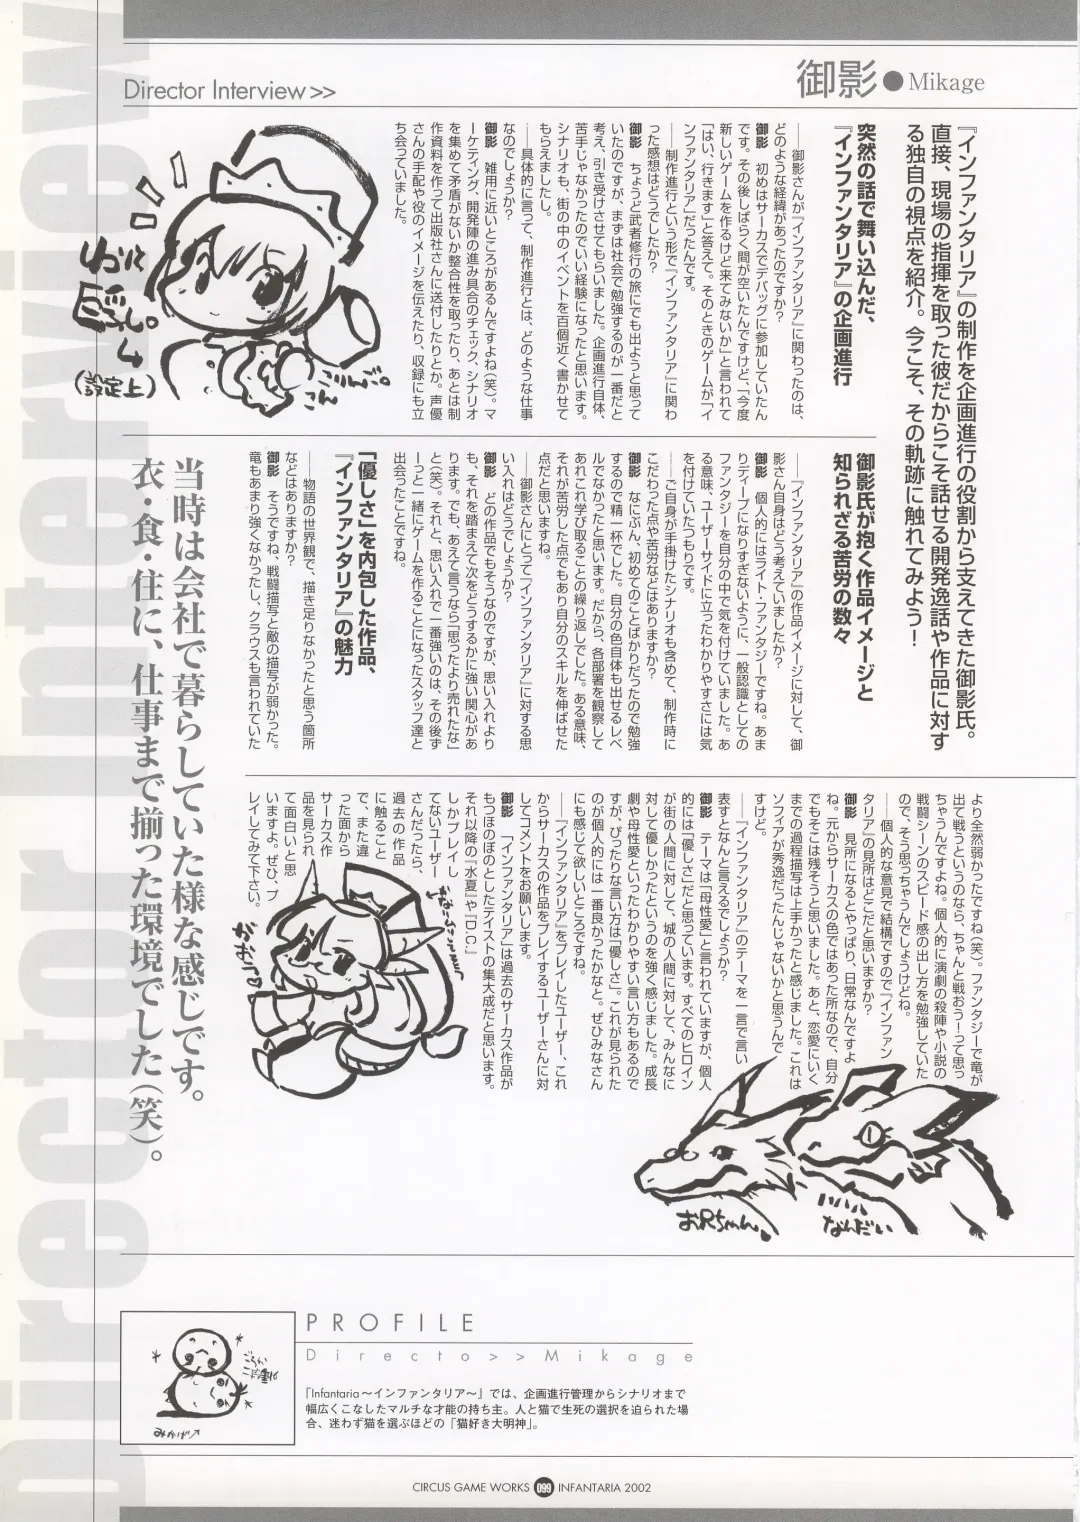 Director Interview>>
御影●Mikage
『インファンタリア』の制作を企画進行の役割から支えてきた御影氏。
直接、現場の指揮を取った彼だからこそ話せる開発逸話や作品に対す
る独自の視点を紹介。今こそ、その軌跡に触れてみよう！
突然の話で舞い込んだ、
『インファンタリア』の企画進行
――御影さんが『インファンタリア』に関わったのは、
どのような経緯があったのですか？
御影　初めはサーカスでデバッグに参加していたん
です。その後しばらく間が空いたんですけど、「今度
新しいゲームを作るけど来てみないか」と言われて
「はい、行きます」と答えて。そのときのゲームが『イ
ンファンタリア』だったんです。
――制作進行という形で『インファンタリア』に関わ
った感想はどうでしたか？
御影　ちょうど武者修行の旅にでも出ようと思って
いたのですが、まずは社会で勉強するのが一番だと
考え、引き受けさせてもらいました。企画進行自体、
苦手じゃなかったのでいい経験になったと思います。
シナリオも、街の中のイベントを百個近く書かせて
もらえましたし。
――具体的に言って、制作進行とは、どのような仕事
なのでしょうか？
御影　雑用に近いところがあるんですよね（笑）。マ
ーケティング、開発陣の進み具合のチェック、シナリオ
を集めて矛盾がないか整合性を取ったり、あとは制
作資料を作って出版社さんに送付したりとか。声優
さんの手配や役のイメージを伝えたり、収録にも立
ち会っていました。
巨乳。
（設定上）
御影氏が抱く作品イメージと
知られざる苦労の数々
――『インファンタリア』の作品イメージに対して、御
影さん自身はどう考えていましたか？
御影　個人的にはライト・ファンタジーですね。あま
りディープになりすぎないように、一般認識としての
ファンタジーを自分の中で気を付けていました。あ
る意味、ユーザーサイドに立ったわかりやすさには気
を付けていたつもりです。
――ご自身が手掛けたシナリオも含めて、制作時に
こだわった点や苦労などはありますか？
御影　なにぶん、初めてのことばかりだったので勉強
するので精一杯でした。自分の色自体も出せるレベ
ルでなかったと思います。だから、各部署を観察して
あれこれ学び取ることの繰り返しでした。ある意味、
それが苦労した点でもあり自分のスキルを伸ばせた
点だと思いますね。
――御影さんにとって『インファンタリア』に対する思
い入れはどうでしょうか？
御影　どの作品でもそうなのですが、思い入れより
も、それを踏まえて次をどうするかに強い関心があ
ります。でも、あえて言うなら「思ったより売れたな」
と（笑）。それと、思い入れで一番強いのは、その後ず
ーっと一緒にゲームを作ることになったスタッフ達と
出会ったことですね。
「優しさ」を内包した作品、
『インファンタリア』の魅力
――物語の世界観で、描き足りなかったと思う箇所
などはありますか？
御影　そうですね、戦闘描写と敵の描写が弱かった。
竜もあまり強くなかったし、クラウスも言われていた
より全然弱かったですね（笑）。ファンタジーで竜が
出て戦うというのなら、ちゃんと戦おう！って思っ
ちゃうんですよね。個人的に演劇の殺陣や小説の
戦闘シーンのスピード感の出し方を勉強していた
ので、そう思っちゃうんでしょうけどね。
――個人的な意見で結構ですので『インファン
タリア』の見所はどこだと思いますか？
御影　見所になるとやっぱり、日常なんですよ
ね。元からサーカスの色ではあった所なので、自分
でもそこは残そうと思いました。あと、恋愛にいく
までの過程描写は上手かったと感じました。これは
ソフィアが秀逸だったんじゃないかと思うんで
すけど。
――『インファンタリア』のテーマを一言で言い
表すとなんと言えるでしょうか？
御影　テーマは「母性愛」と言われていますが、個人
的には「優しさ」だと思っています。すべてのヒロイン
が街の人間に対して、城の人間に対して、みんなに
対して優しかったというのを強く感じました。成長
劇や母性愛といったわかりやすい言い方もあるので
すが、ぴったりな言い方は「優しさ」。これが見られた
のが個人的には一番良かったかなと。ぜひみなさん
にも感じて欲しいところですね。
――『インファンタリア』をプレイしたユーザー、これ
からサーカスの作品をプレイするユーザーさんに対
してコメントをお願いします。
御影　『インファンタリア』は過去のサーカス作品が
もつほのぼのとしたテイストの集大成だと思います。
それ以降の『水夏』や『D.C.』
しかプレイし
てないユーザー
さんだったら、
過去の作品
に触れること
で、また違
った面から
サーカス作
品を見られ
て面白いと思
いますよ。ぜひ、プ
レイしてみて下さい。
当時は会社で暮らしていた様な感じです。
衣・食・住に、仕事まで揃った環境でした（笑）。
お兄ちゃん。
なんだい
PROFILE
Directo>>Mikage
『Infantaria～インファンタリア～』では、企画進行管理からシナリオまで
幅広くこなしたマルチな才能の持ち主。人と猫で生死の選択を迫られた場
合、迷わず猫を選ぶほどの「猫好き大明神」。
CIRCUS GAME WORKS 099 INFANTARIA 2002
Director Interview